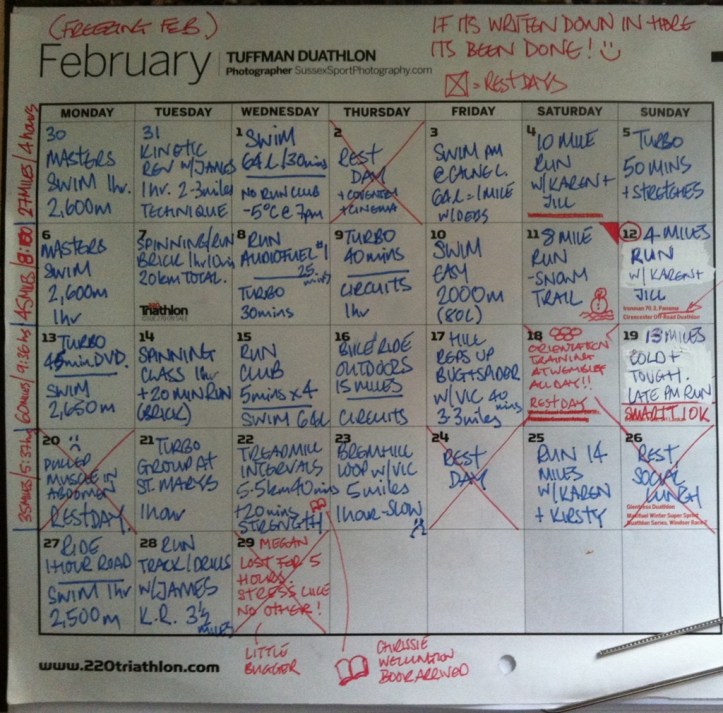 (FREEZING FEB)
IF ITS WRITTEN DOWN IN HERE
ITS BEEN DONE!
= RESTDAYS
February
TUFFMAN DUATHLON
Photographer SussexSportPhotography.com
MONDAY TUESDAY WEDNESDAY THURSDAY FRIDAY SATURDAY SUNDAY
27 MILES / 4 hours
30
MASTERS
SWIM 1hr.
2,600m
31
KINETIC
REV W/JAMES
1hr. 2-3miles
TECHNIQUE
1 SWIM
64L/30mins
NO RUN CLUB
-5°C @ 7pm
2
REST
DAY
+ COVENTRY
+ CINEMA
3
SWIM AM
@ CALNE L.
64L = 1 MILE
W/DEBS
4 10 MILE
RUN
W/KAREN +
JILL
5 TURBO
50 MINS
+ STRETCHES
45 MILES /
6
MASTERS
SWIM
2,600m
1hr
7
SPINNING/RUN
BRICK 1hr10mins
20km TOTAL.
220 Triathlon
8 RUN
AUDIOFUEL #1
25 mins
TURBO
30mins
9 TURBO
40mins
CIRCUITS
1hr
10
SWIM
EASY
2000m
(80L)
11 8 MILE
RUN
-SNOW
TRAIL
12 4 MILES
RUN
W/KAREN +
JILL
Ironman 70.3, Panama
Cirencester Off Road Duathlon
60 MILES / 9:36 hs
13 TURBO
45min DVD.
SWIM
2,650m
14
SPINNING
CLASS 1hr
+ 20 MIN RUN
(BRICK)
15
RUN
CLUB
5mins x 4
SWIM 64L
16
BIKE RIDE
OUTDOORS
15 MILES
CIRCUITS
17 HILL
REPS UP
BUG + SPIDER
W/VIC 40 mins
3.3miles
18
ORIENTATION
TRAINING
AT WEMBLEY
ALL DAY!!
REST DAY
19 13 MILES
COLD +
TOUGH.
LATE PM RUN
35 MILES / 5:37hs
20
PULLED
MUSCLE IN
ABDOMEN
REST DAY
21 TURBO
GROUP AT
ST. MARYS
1hour
22
TREADMILL
INTERVALS
5.5km 40mins
+ 20mins
STRENGTH
23
BREMHILL
LOOP W/VIC
5 miles
1 HOUR - SLOW
24
REST
DAY
25
RUN 14
MILES
W/KAREN
+ KIRSTY
26
REST
SOCIAL
LUNCH
27 RIDE
1 HOUR ROAD
SWIM 1hr
2,500m
28 RUN
TRACK/DRILLS
W/JAMES
K.R. 3½
miles
29 MEGAN
LOST FOR 5
HOURS.
STRESS LIKE
NO OTHER!
www.220triathlon.com
LITTLE
BUGGER
CHRISSIE
WELLINGTON
BOOK ARRIVED